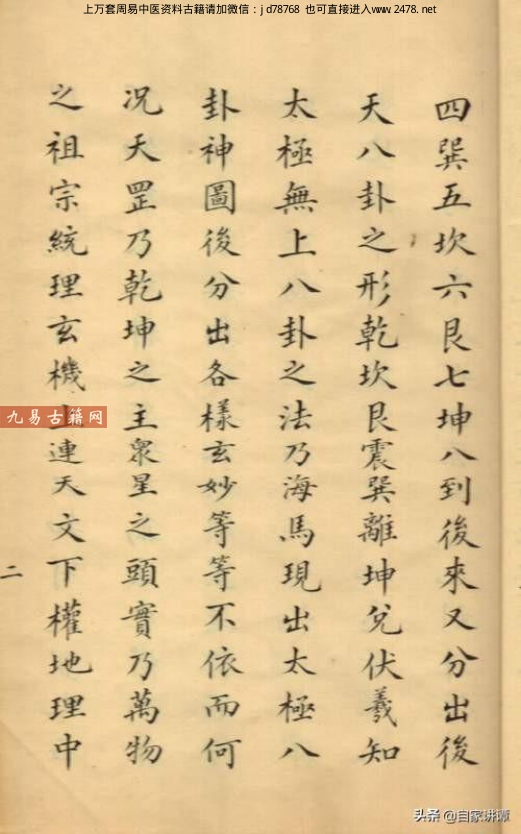 上万套周易中医资料古籍请加微信：jd78768 也可直接进入www.2478.net
四巽五坎六艮七坤八到後來又分出後
天八卦之形乾坎艮震巽離坤兌伏羲知
太極無上八卦之法乃海馬現出太極八
卦神圖後分出各樣玄妙等等不依而何
况天罡乃乾坤之主衆星之頭實乃萬物
之祖宗統理玄機上連天文下權地理中
二
九易古籍网
头条 @自家讲谭